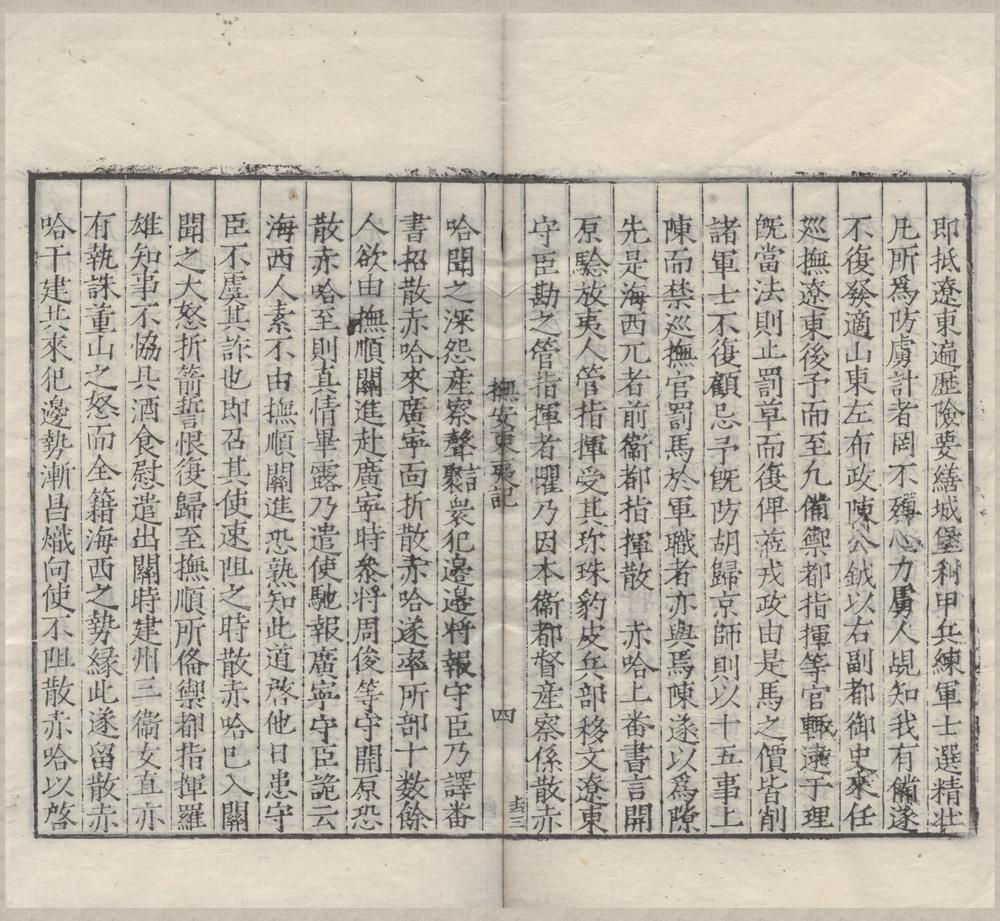 即抵遼東遍歷險要繕城堡利甲兵練軍士選精壯
凡所爲防虜計者罔不殫心力虜人覘知我有備遂
不復發適山東左布政陳公鉞以右副都御史來任
巡撫遼東後予而至九備禦都指揮等官輙遠于理
旣當法則止罰草而復俾蒞戎政由是馬之價皆削
諸軍士不復顧忌予旣防胡歸京師則以十五事上
陳而禁巡撫官罰馬於軍職者亦與焉陳遂以爲隙
先是海西兀者前衞都指揮散 赤哈上畨書言開
原驗放夷人管指揮受其珎珠豹皮兵部移文遼東
守臣勘之管指揮者懼乃因本衞都督産察係散赤
撫安東夷記
四
哈聞之深怨産察聲言聚衆犯邊邊將報守臣乃譯畨
書招散赤哈來廣寧面折散赤哈遂率所部十數餘
人欲由撫順關進赴廣寧時叅將周俊等守開原恐
散赤哈至則真情畢露乃遣使馳報廣寧守臣詭云
海西人素不由撫順關進恐熟知此道啓他日患守
臣不虞其詐也即召其使速阻之時散赤哈已入關
聞之大怒折箭誓恨復歸至撫順所俻禦都指揮羅
雄知事不恊具酒食慰遣出關時建州三衞女直亦
有執誅董山之怒而全籍海西之勢緣此遂留散赤
哈干建共來犯邊勢漸昌熾向使不阻散赤哈以啓